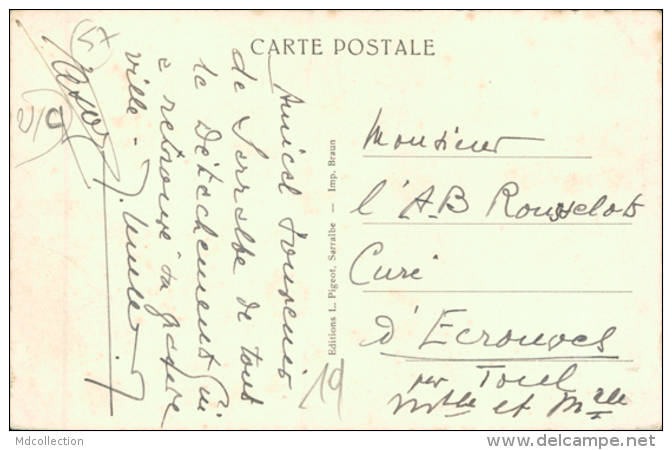 CARTE POSTALE
Amical souvenir
de Sarralbe de tout
le Détachement qui
a retrouvé sa petite
ville -
Editions L. Pigeot, Sarralbe — Imp. Braun
Monsieur
l'AB Rousselots
Curé
d'Ecrouves
par Toul
Mthe et Mlle
19
57
Mdcollection